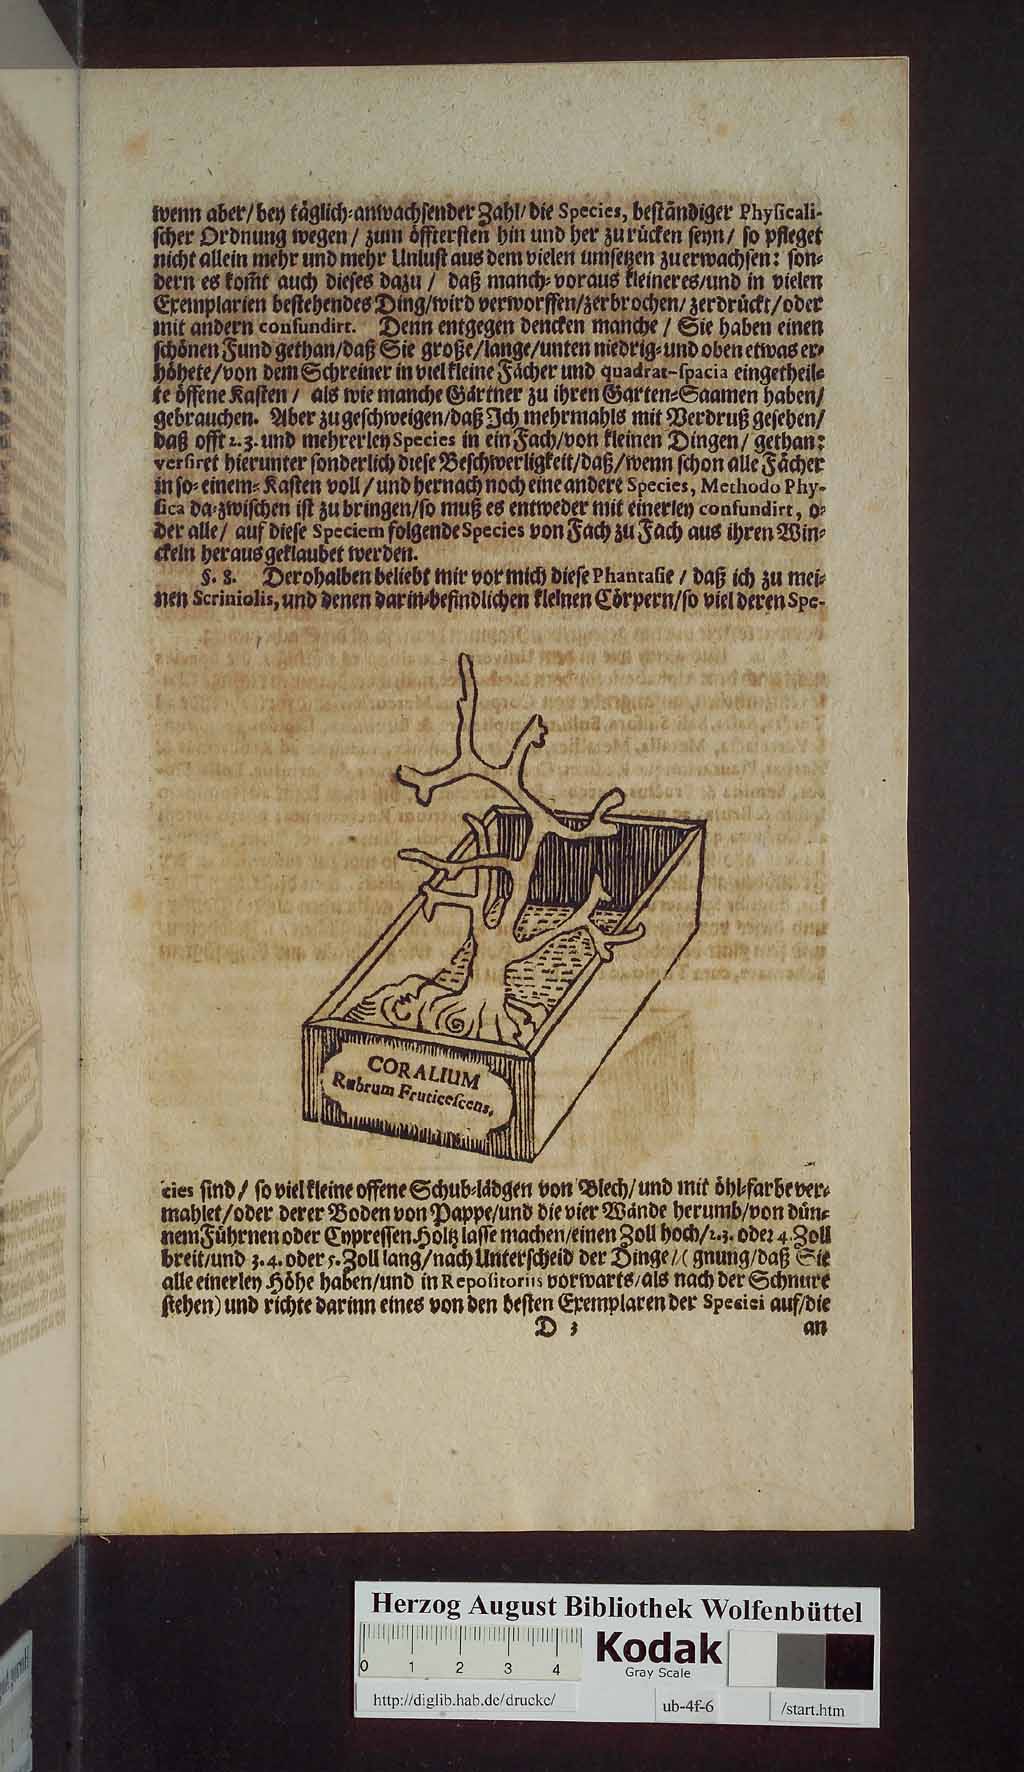 wenn aber/ bey täglich-anwachsender Zahl/ die Species, beständiger Physicali-
scher Ordnung wegen/ zum öfftersten hin und her zu rücken seyn/ so pfleget
nicht allein mehr und mehr Unlust aus dem vielen umsetzen zuerwachsen: son-
dern es kom̃t auch dieses dazu/ daß manch-voraus kleineres/ und in vielen
Exemplarien bestehendes Ding/ wird verworffen/ zerbrochen/ zerdrückt/ oder
mit andern confundirt. Denn entgegen dencken manche/ Sie haben einen
schönen Fund gethan/ daß Sie große/ lange/ unten niedrig- und oben etwas er-
höhete/ von dem Schreiner in viel kleine Fächer und quadrat-spacia eingetheil-
te öffene Kasten/ als wie manche Gärtner zu ihren Garten-Saamen haben/
gebrauchen. Aber zu geschweigen/ daß Ich mehrmahls mit Verdruß gesehen/
daß offt 2. 3. und mehrerley Species in ein Fach/ von kleinen Dingen/ gethan:
versiret hierunter sonderlich diese Beschwerligkeit/ daß/ wenn schon alle Fächer
in so-einem-Kasten voll/ und hernach noch eine andere Species, Methodo Phy-
sica da-zwischen ist zu bringen/ so muß es entweder mit einerley confundirt, o-
der alle/ auf diese Speciem folgende Species von Fach zu Fach aus ihren Win-
ckeln heraus geklaubet werden.
§. 8. Derohalben beliebt mir vor mich diese Phantasie/ daß ich zu mei-
nen Scriniolis, und denen darin-befindlichen kleinen Cörpern/ so viel deren Spe-
CORALIUM
Rubrum Fruticescens,
cies sind/ so viel kleine offene Schub-lädgen von Blech/ und mit öhl-farbe ver-
mahlet/ oder derer Boden von Pappe/ und die vier Wände herumb/ von dün-
nem Führnen oder Cypressen Holtz lasse machen/ einen Zoll hoch/ 2. 3. oder 4. Zoll
breit/ und 3. 4. oder 5. Zoll lang/ nach Unterscheid der Dinge/ (gnung/ daß Sie
alle einerley Höhe haben/ und in Repositoriis vorwarts/ als nach der Schnure
stehen) und richte darinn eines von den besten Exemplaren der Speciei auf/ die
D 3 an
Herzog August Bibliothek Wolfenbüttel
0 1 2 3 4
Kodak
Gray Scale
http://diglib.hab.de/drucke/ ub-4f-6 /start.htm